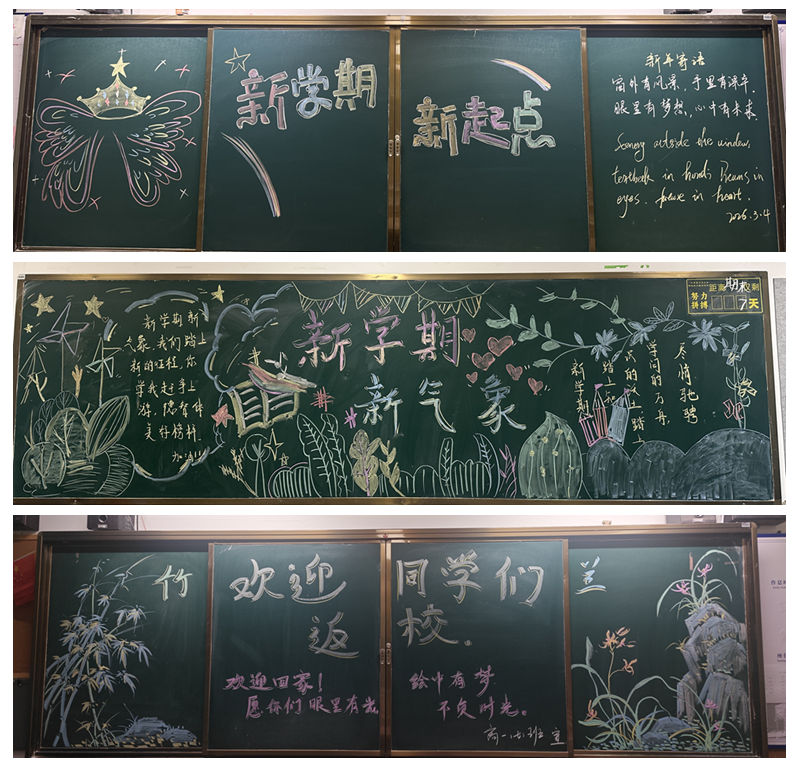 新学期
新起点
新年寄语
窗外有风景,手里有课本,
眼里有梦想,心中有未来.
Scenery outside the window,
textbook in hand. Dreams in
eyes. future in heart.
2026.3.4
距离期末仅剩
努力
拼搏
7天
新学期新
气象,我们踏上
新的征程,你
学我赶手上
好
加油!!
新学期
新气象
尽情驰骋
学问的万舟,
新学期
竹
欢迎同学们
返校。
兰
欢迎回家!
愿你们眼里有光
绘中有梦
不负时光。
高一(5)班宣